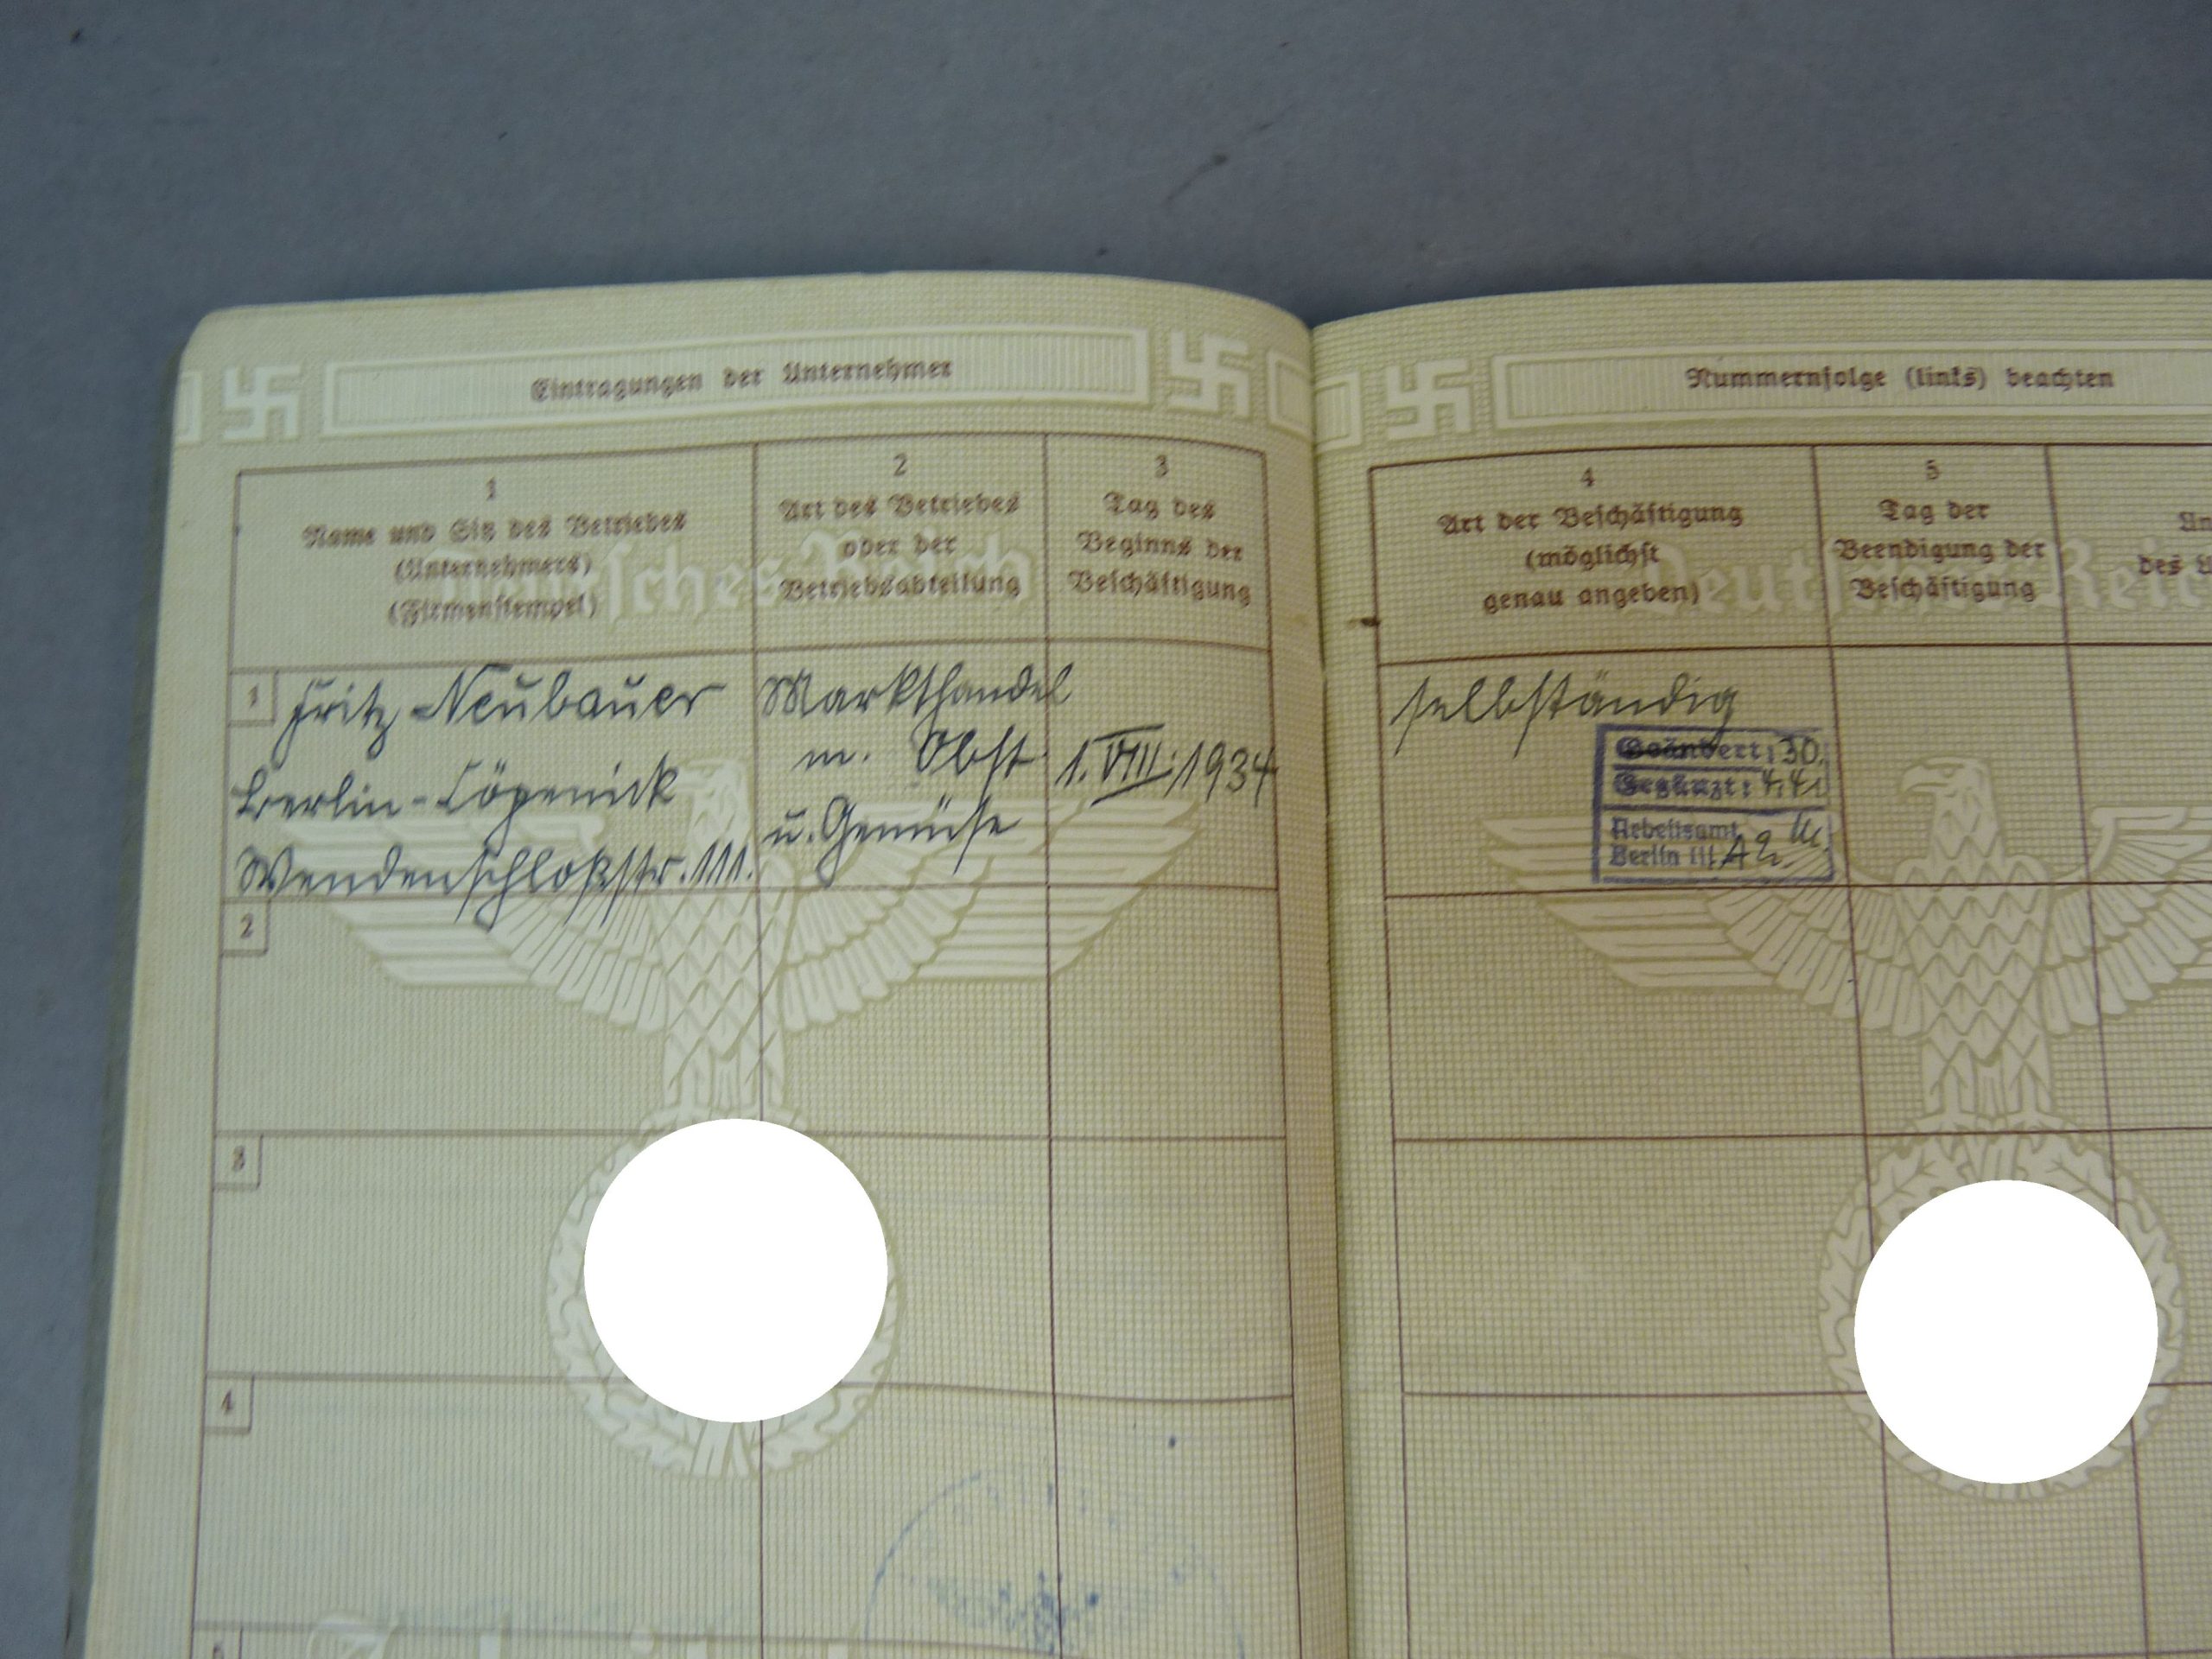 Eintragungen der Unternehmer
1
Name und Sitz des Betriebes
(Unternehmers)
(Firmenstempel)
2
Art des Betriebes
oder der
Betriebsabteilung
3
Tag des
Beginns der
Beschäftigung
1
Fritz Neubauer
Berlin-Cöpenick
Wendenschloßstr. 111.
Markthandel
m. Obst
u. Gemüse
1. VIII. 1934
2
3
4
Nummernfolge (links) beachten
4
Art der Beschäftigung
(möglichst
genau angeben)
5
Tag der
Beendigung der
Beschäftigung
Un
des U
Deutsches Reich
selbständig
Geändert: 30.
Ergänzt: 4. 41
Arbeitsamt
Berlin III